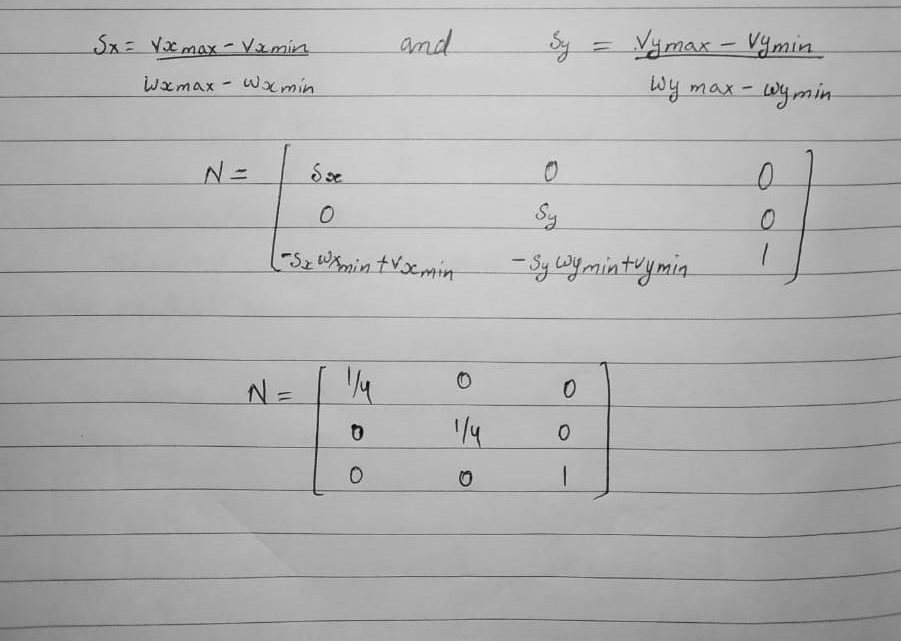 Sx = Vxmax - Vxmin and Sy = Vymax - Vymin
Wxmax - Wxmin Wy max - Wymin
N = Sx 0 0
0 Sy 0
-Sx Wxmin + Vxmin -Sy Wymin + Vymin 1
N = 1/4 0 0
0 1/4 0
0 0 1